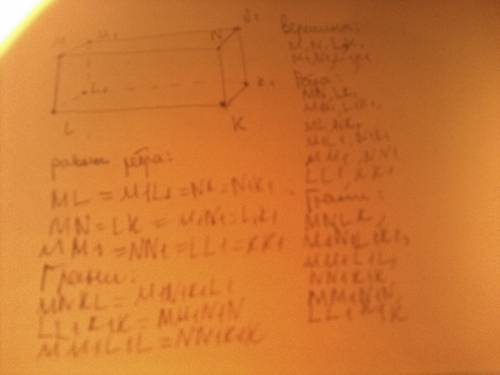 M M₁ N N₁
L₁ K₁
L K
равны ребра:
ML = M₁L₁ = NK = N₁K₁
MN = LK = M₁N₁ = L₁K₁
MM₁ = NN₁ = LL₁ = KK₁
Грани:
MNKL = M₁N₁K₁L₁
LL₁K₁K = MM₁N₁N
MM₁L₁L = NN₁K₁K
вершины:
M, N, L, K,
Ребра:
MN, LK,
M₁N₁, L₁K₁,
ML, NK,
M₁L₁, N₁K₁
MM₁, NN₁
LL₁, KK₁
Грани:
MNLK,
M₁N₁L₁K₁,
MM₁L₁L,
NN₁K₁K,
MM₁N₁N,
LL₁K₁K